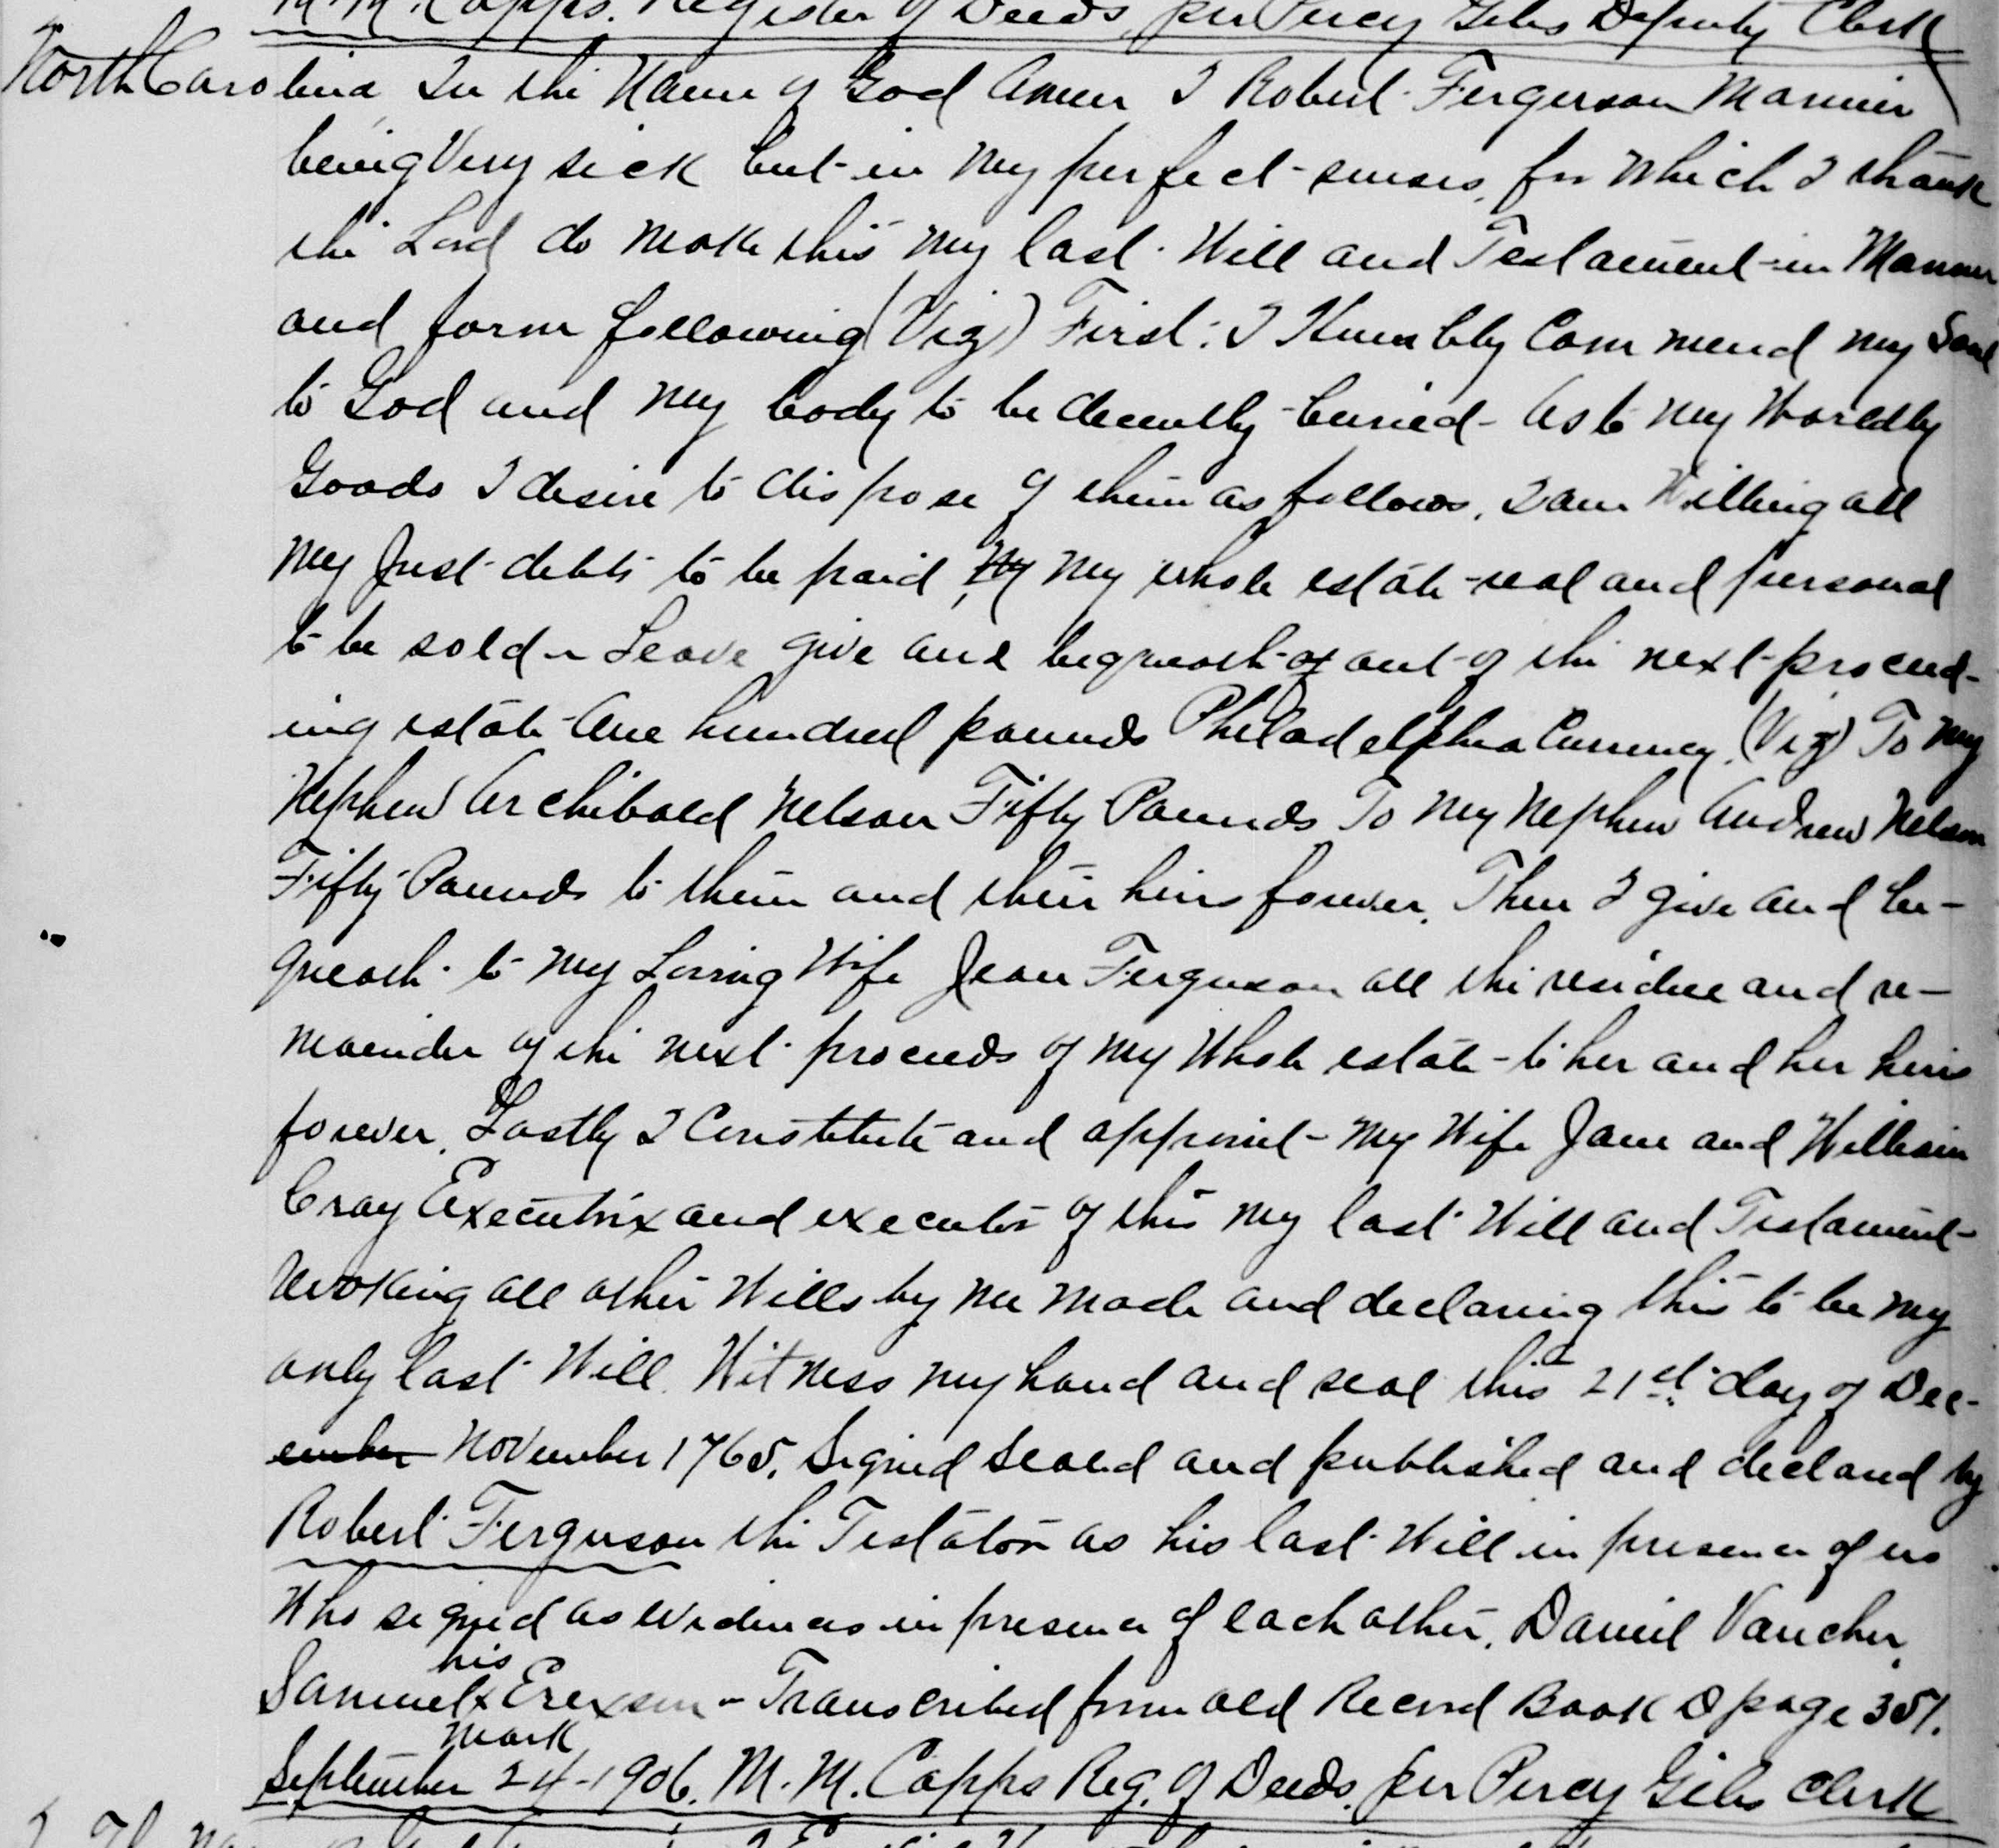 M. M. Capps. Register of Deeds, per Percy Giles Deputy Clerk
North Carolina, In the Name of God Amen I Robert Fergerson Marinir
being Very sick but in my perfect senses, for which I thank
the Lord do make this my last Will and Testament in Manner
and form following (Viz) First: I Humbly Commend my Soul
to God and my body to be decently buried - As to my Worldly
Goods I desire to dispose of them as follows, I am Willing all
my Just debts to be paid, My my whole estate real and personal
to be sold - Leave give and bequeath of out of the next proceed-
ing estate One hundred pounds Philadelphia Currency, (Viz) To my
Nephew Archibald Nelson Fifty Pounds To my Nephew Andrew Nelson
Fifty Pounds to them and their heirs forever. Then I give and be-
queath to my Loving Wife Jean Ferguson all the residue and re-
mainder of the next proceeds of my Whole estate - to her and her heirs
forever, Lastly I Constitute and appoint - my Wife Jane and William
Cray Executrix and executor of this my last Will and Testament
revoking all other Wills by me made and declaring this to be my
only last Will. Witness my hand and seal this 21st day of Dec-
ember November 1765. Signed Sealed and published and declared by
Robert Ferguson the Testator as his last Will in presence of us
Who signed as evidences in presence of each other, Daniel Vaucher,
his
Samuel x Erexson - Transcribed from old Record Book D page 351.
mark
September 24 - 1906. M. M. Capps Reg. of Deeds, per Percy Giles Clerk